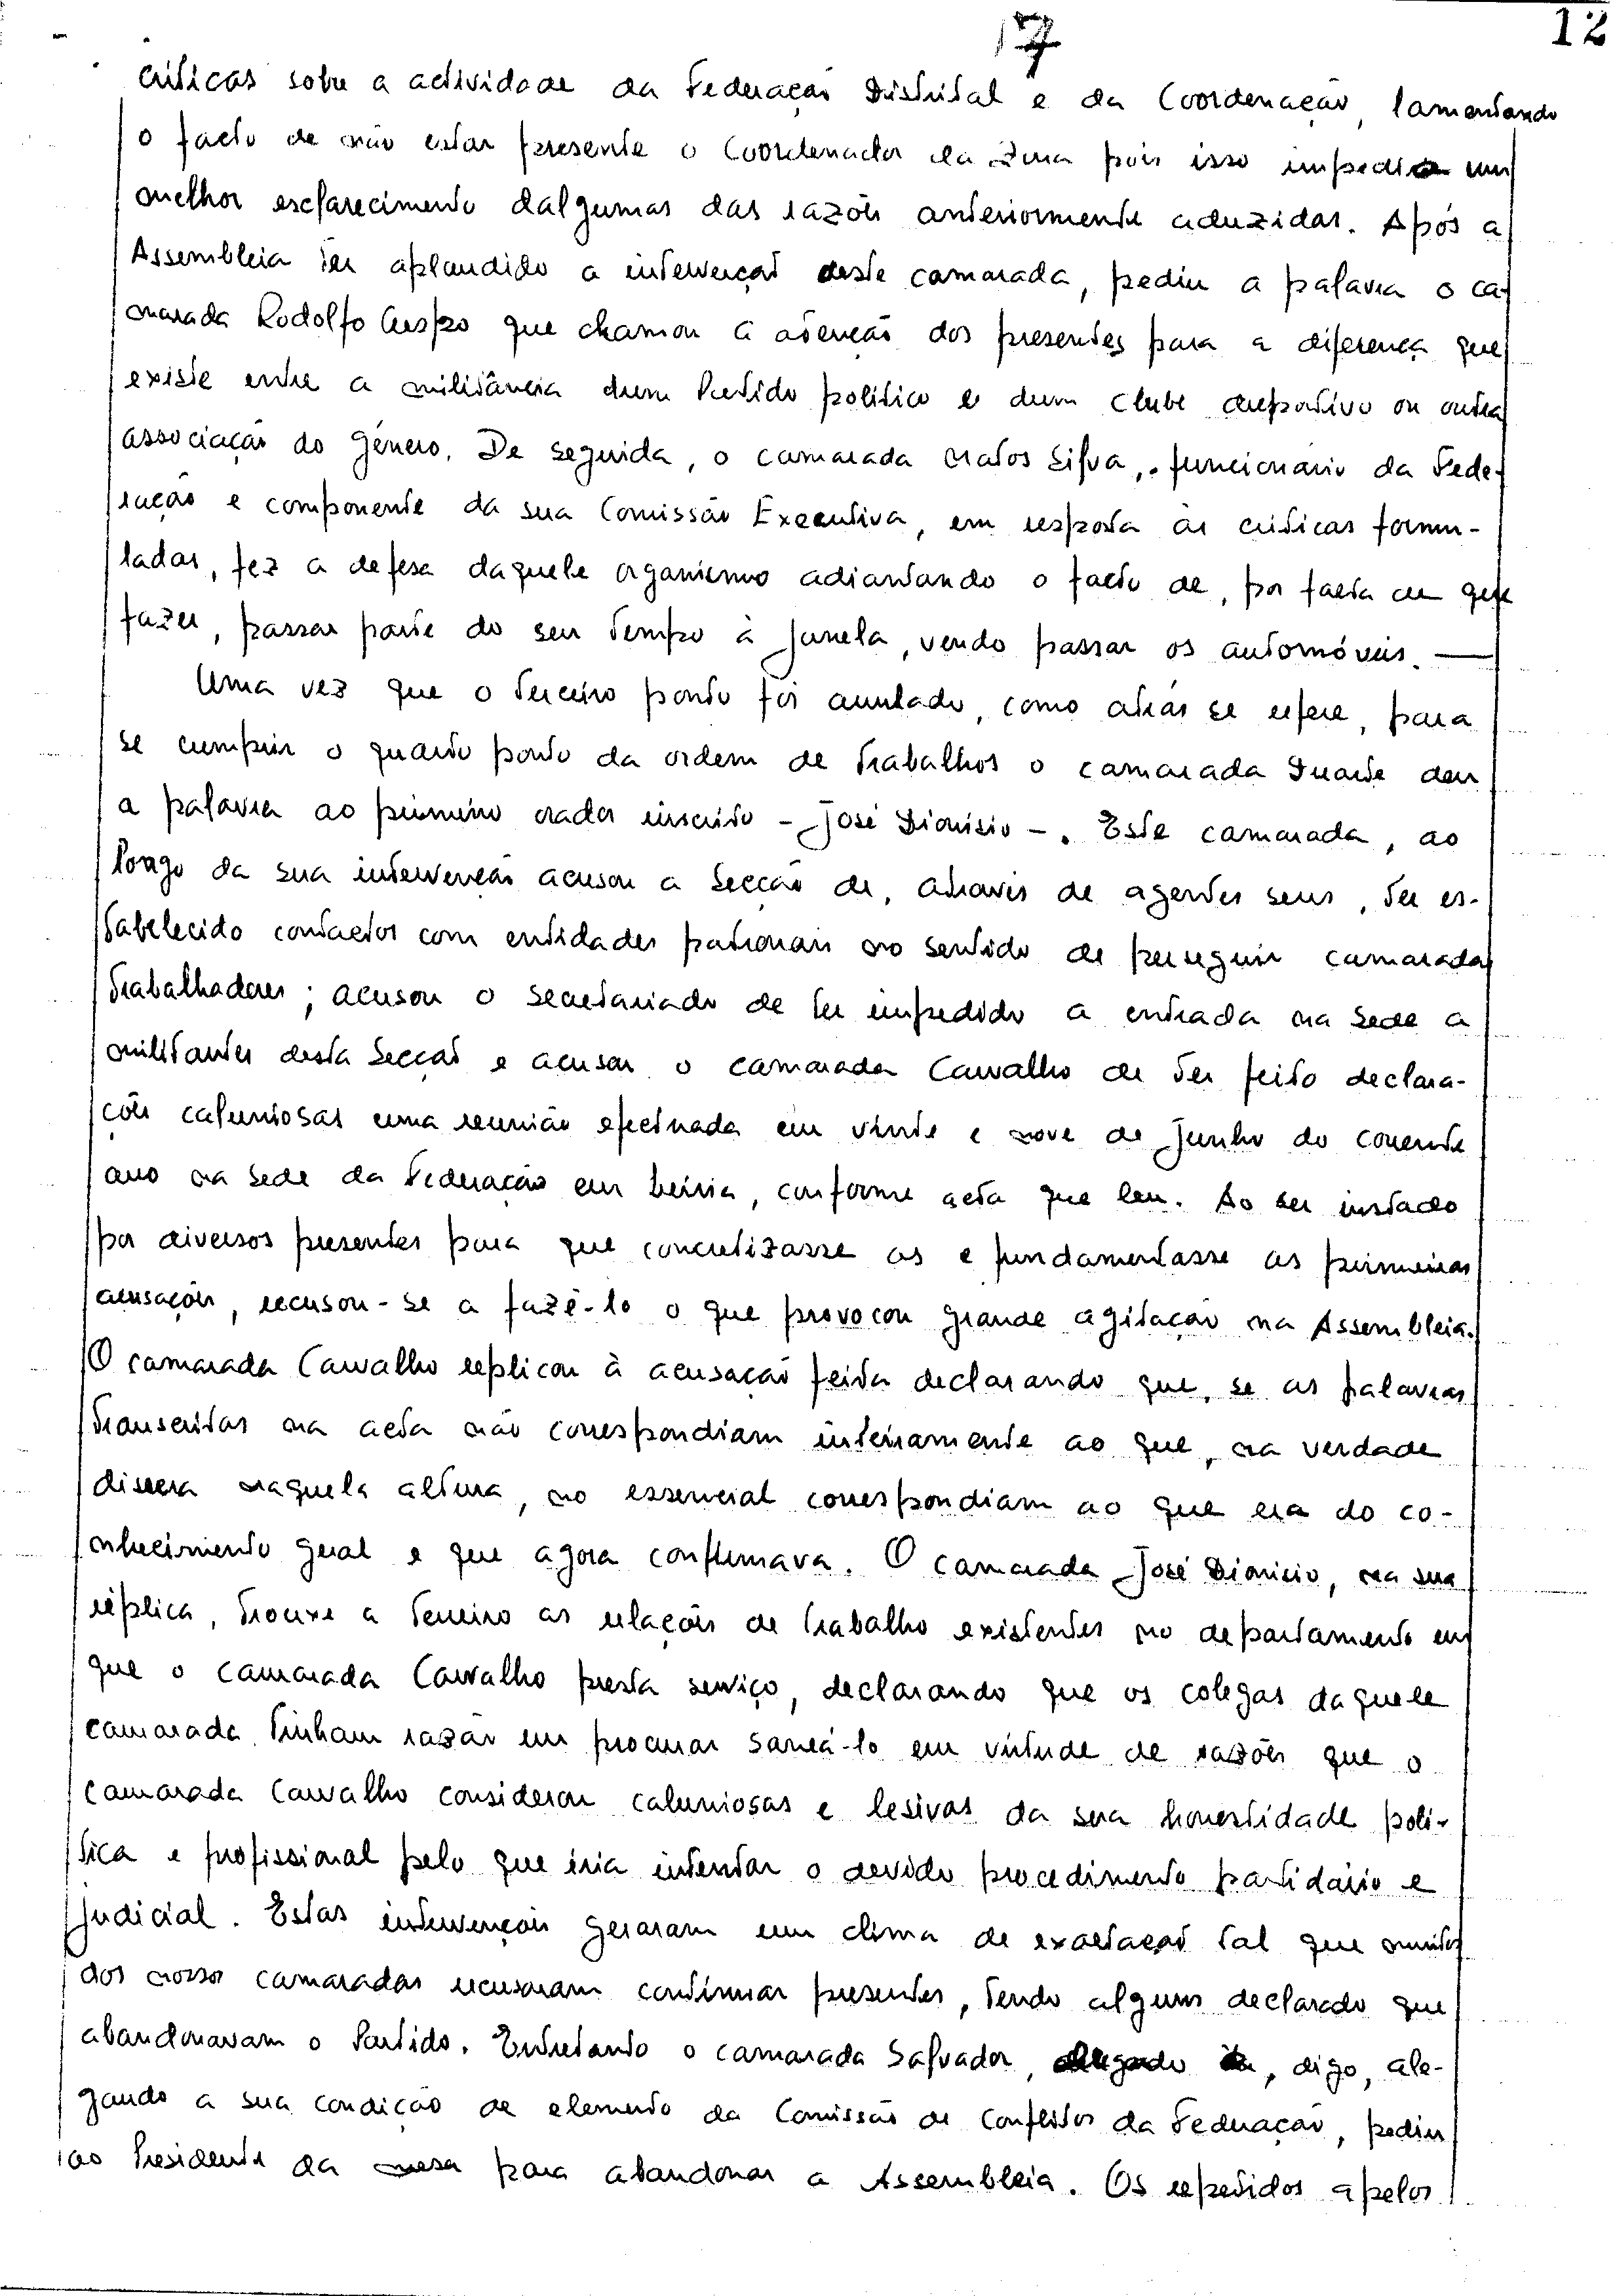 17
12
críticas sobre a actividade da Federação Distrital e da Coordenação, lamentando
o facto de não estar presente o Coordenador da Zona pois isso impedia um
melhor esclarecimento dalgumas das razões anteriormente aduzidas. Após a
Assembleia ter aplaudido a intervenção deste camarada, pediu a palavra o ca-
marada Rodolfo Crespo que chamou a atenção dos presentes para a diferença que
existe entre a militância dum Partido político e dum clube desportivo ou outra
associação do género. De seguida, o camarada Matos Silva, funcionário da Fede-
ração e componente da sua Comissão Executiva, em resposta às críticas formu-
ladas, fez a defesa daquele organismo adiantando o facto de, por falta de que
fazer, passar parte do seu tempo à janela, vendo passar os automóveis. —
Uma vez que o terceiro ponto foi anulado, como atrás se refere, para
se cumprir o quarto ponto da ordem de trabalhos o camarada Duarte deu
a palavra ao primeiro orador inscrito - José Dionísio -. Este camarada, ao
longo da sua intervenção acusou a Secção de, através de agentes seus, ter es-
tabelecido contactos com entidades patronais no sentido de perseguir camaradas
trabalhadores; acusou o secretariado de ter impedido a entrada na sede a
militantes desta Secção e acusou o camarada Carvalho de ter feito declara-
ções caluniosas numa reunião efectuada em vinte e nove de Junho do corrente
ano na sede da Federação em Leiria, conforme acta que leu. Ao ser instado
por diversos presentes para que concretizasse as e fundamentasse as primeiras
acusações, recusou-se a fazê-lo o que provocou grande agitação na Assembleia.
O camarada Carvalho replicou à acusação feita declarando que, se as palavras
transcritas na acta não correspondiam inteiramente ao que, na verdade
dissera naquela altura, no essencial correspondiam ao que era do co-
nhecimento geral e que agora confirmava. O camarada José Dionísio, na sua
réplica, trouxe a terreiro as relações de trabalho existentes no departamento em
que o camarada Carvalho presta serviço, declarando que os colegas daquele
camarada tinham razão em procurar saneá-lo em virtude de razões que o
camarada Carvalho considerou caluniosas e lesivas da sua honestidade polí-
tica e profissional pelo que iria intentar o devido procedimento partidário e
judicial. Estas intervenções geraram um clima de exaltação tal que muitos
dos nossos camaradas recusaram continuar presentes, tendo alguns declarado que
abandonavam o Partido. Entretanto o camarada Salvador, alegando, digo, ale-
gando a sua condição de elemento da Comissão de Conflitos da Federação, pediu
ao Presidente da mesa para abandonar a Assembleia. Os repetidos apelos